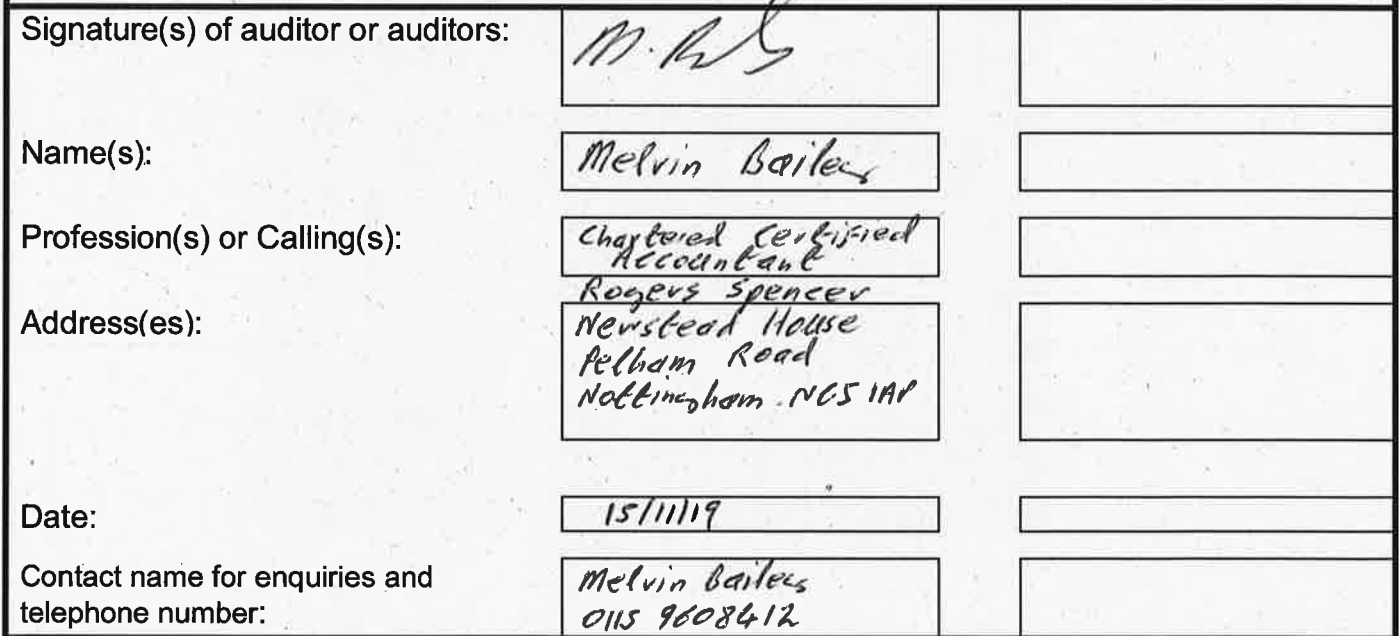 Signature(s) of auditor or auditors:
Name(s):
Melvin Bailey
Profession(s) or Calling(s):
Chartered Certified
Accountant
Rogers Spencer
Address(es):
Newstead House
Pelham Road
Nottingham. NG5 1AP
Date:
15/11/19
Contact name for enquiries and
telephone number:
Melvin Bailey
0115 9608412